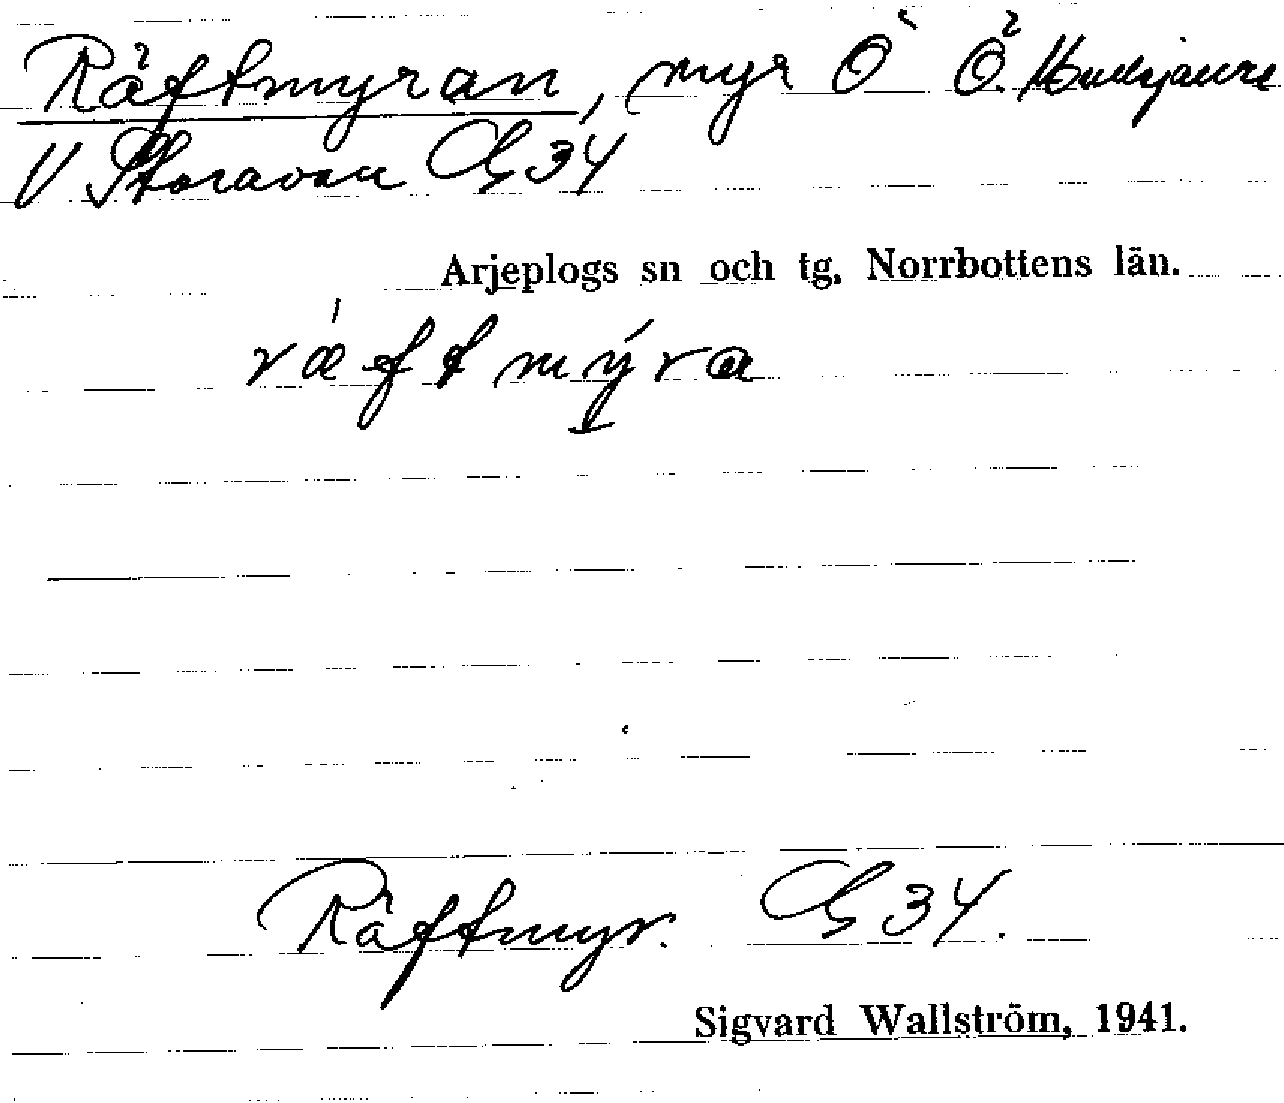 Räftmyran, myr Ö Ö.
V Storavan G34
Arjeplogs sn och tg. Norrbottens län.
ræftmýra
Räftmyr. G34.
Sigvard Wallström, 1941.